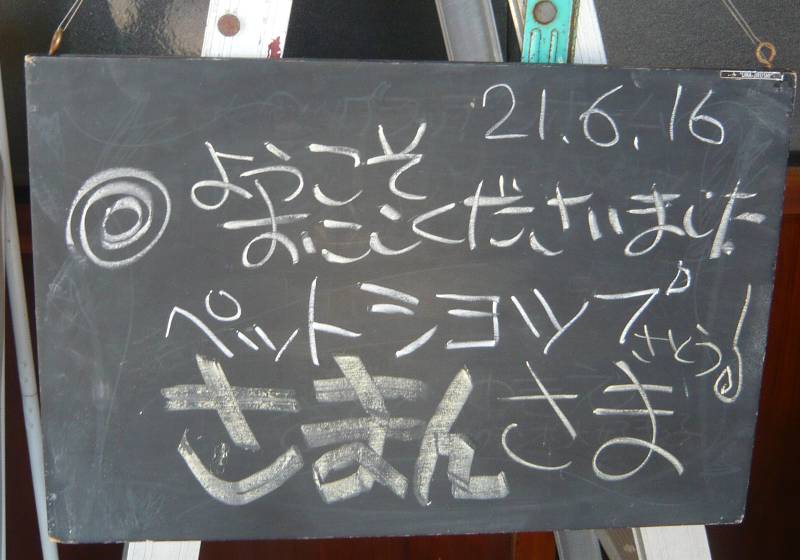 21.6.16
◎ようこそ
おこしくださいました
ペットショップ さとう♪
さまんさま